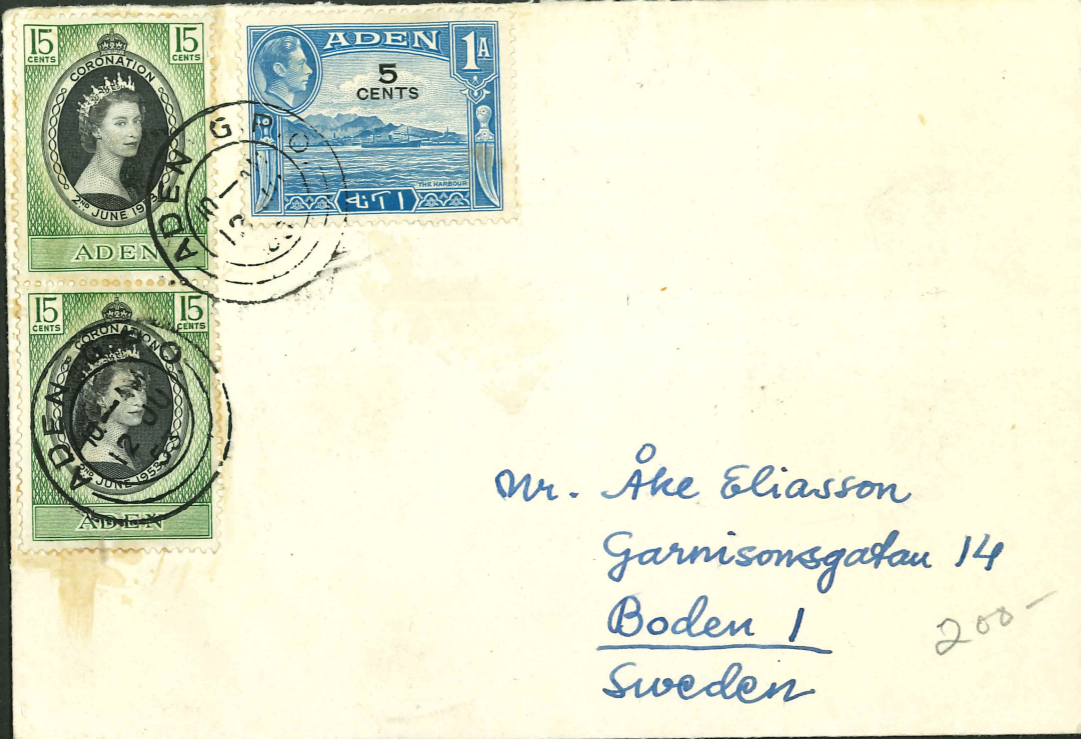 15 CENTS 15 CENTS
CORONATION
2ND JUNE 1953
ADEN
ADEN
1A
5
CENTS
THE HARBOUR
ADEN G.P.O.
12
15 CENTS 15 CENTS
CORONATION
2ND JUNE 1953
ADEN
ADEN G.P.O
12 JU
5
Mr. Åke Eliasson
Garnisonsgatan 14
Boden 1
Sweden
200-